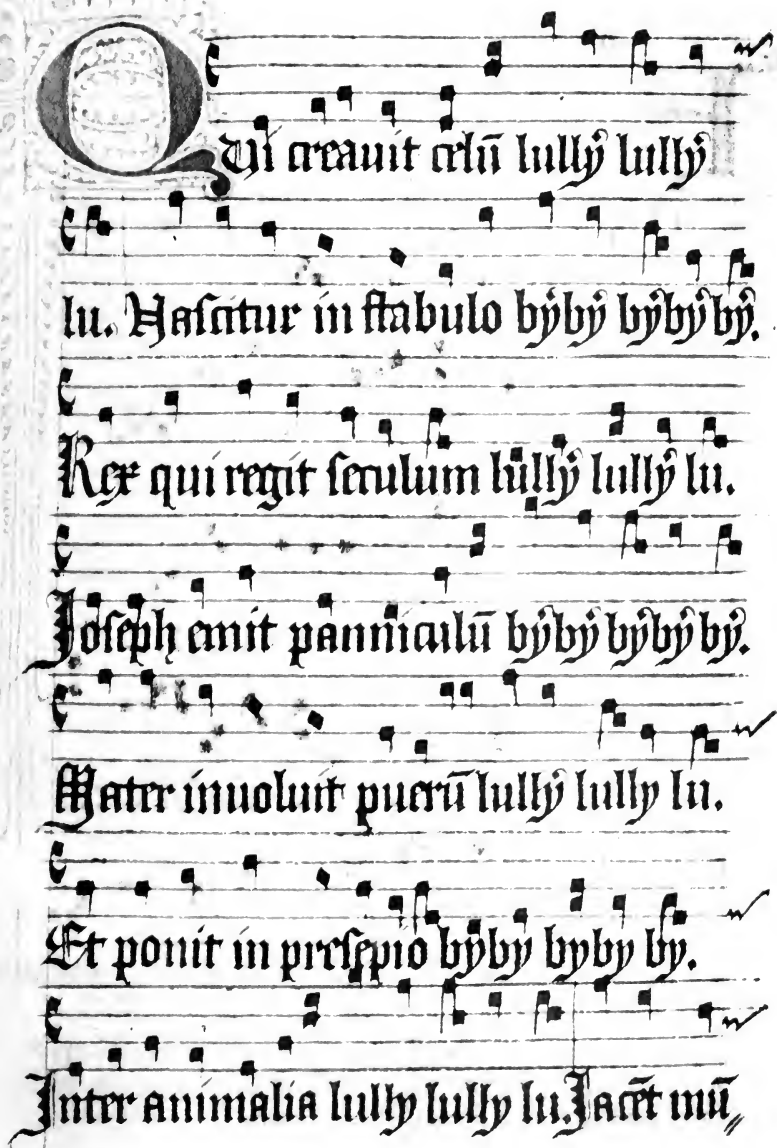 QUi creauit celū lullẏ lullẏ
lu. Naſcitur in ſtabulo bẏbẏ bẏbẏ bẏ.
Rex qui regit ſeculum lullẏ lullẏ lu.
Joſeph emit panniculū bẏbẏ bẏbẏ bẏ.
Mater inuoluit puerū lullẏ lully lu.
Et ponit in preſepio bẏby byby by.
Inter animalia lully lully lu. Jacēt mū